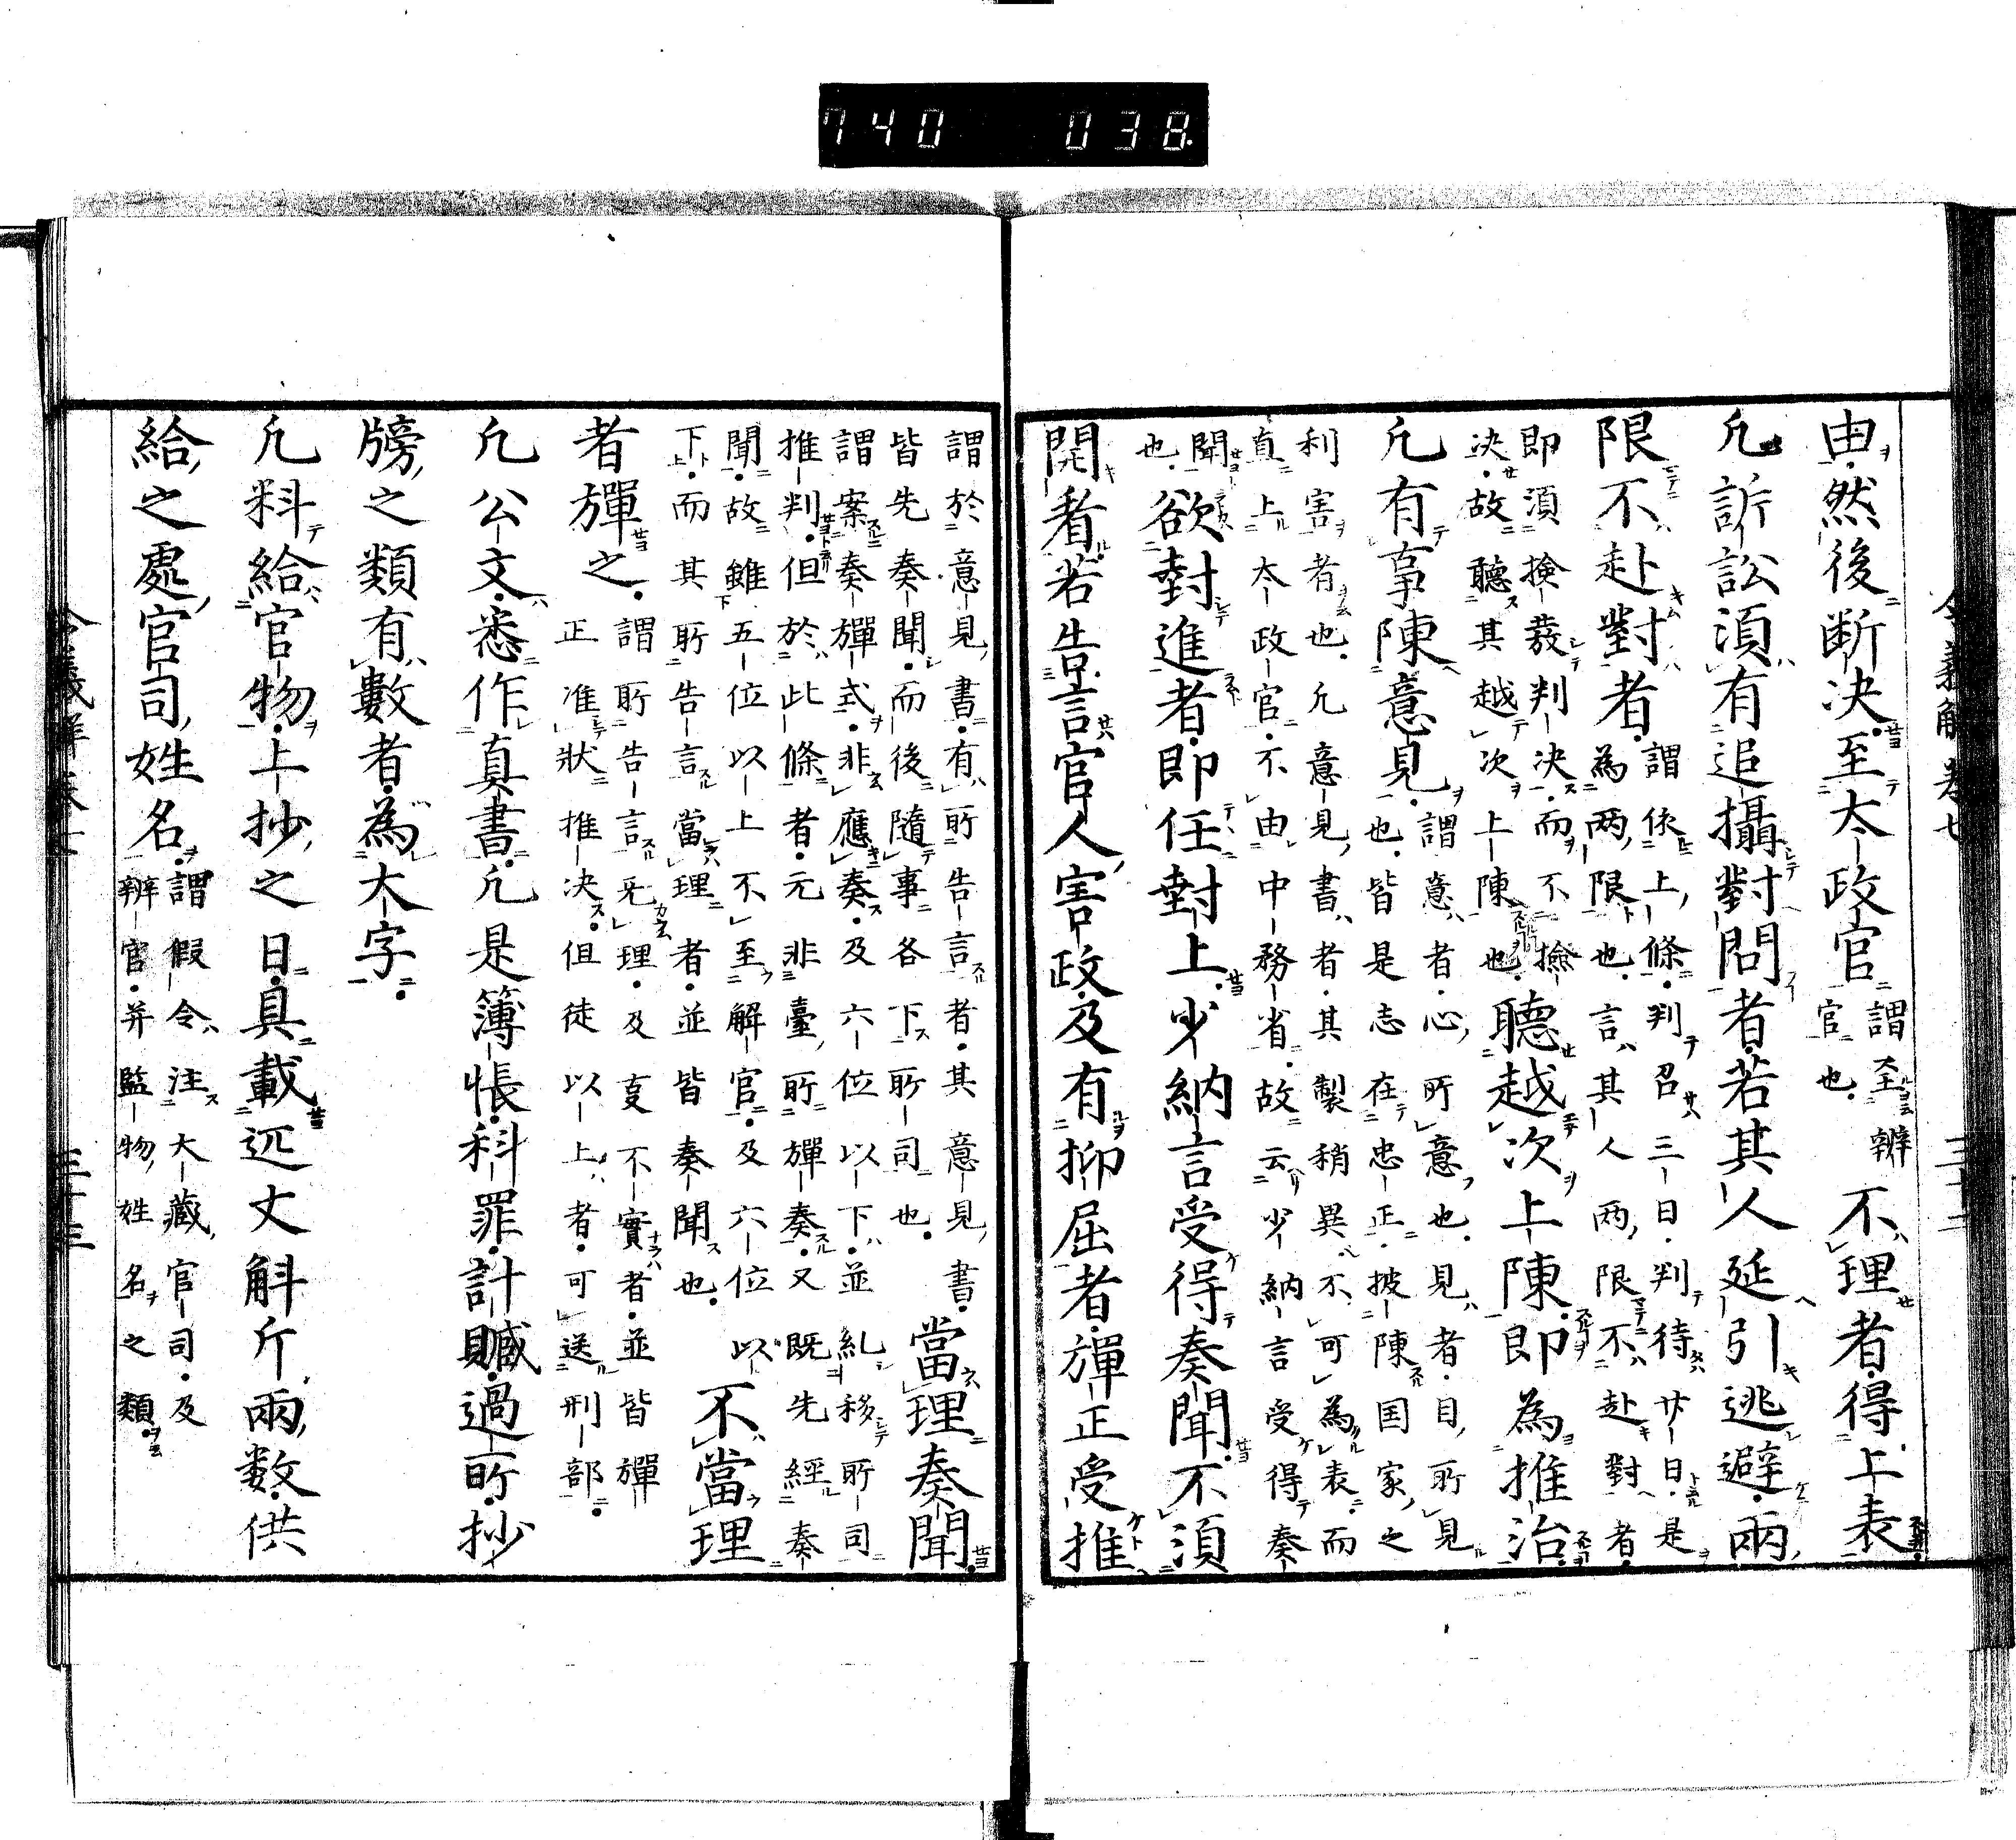 740 038
由然後断决至太政官謂至辨官也不理者得上表
凢訴訟須有追攝對問者若其人延引逃避兩
限不赴對者謂依上條判召三日判待廿日是為兩限也言其人兩限不赴對者
即須撿裁判决而不撿决故聽其越次上陳也聽越次上陳即為推治
凢有事陳意見謂意者心所意也見者目所見也皆是志在忠正披陳国家之
利害者也凢意見書者其製稍異不可為表而直上太政官不由中務省故云少納言受得奏
聞也欲封進者即任封上少納言受得奏聞不須
開看若告言官人害政及有抑屈者彈正受推
謂於意見書有所告言者其意見書皆先奏聞而後隨事各下所司也當理奏聞
謂案奏彈式非應奏及六位以下並糺移所司推判但於此條者元非臺所彈奏又既先經奏
聞故雖五位以上不至解官及六位以下而其所告言當理者並皆奏聞也不當理
者彈之謂所告言乖理及亊不實者並皆彈正准狀推决但徒以上者可送刑部
凢公文悉作真書凢是簿帳科罪計贓過所抄
牓之類有數者為大字
凢料給官物上抄之日具載疋丈斛斤兩數供
給之處官司姓名謂假令注大藏官司及辨官并監物姓名之類